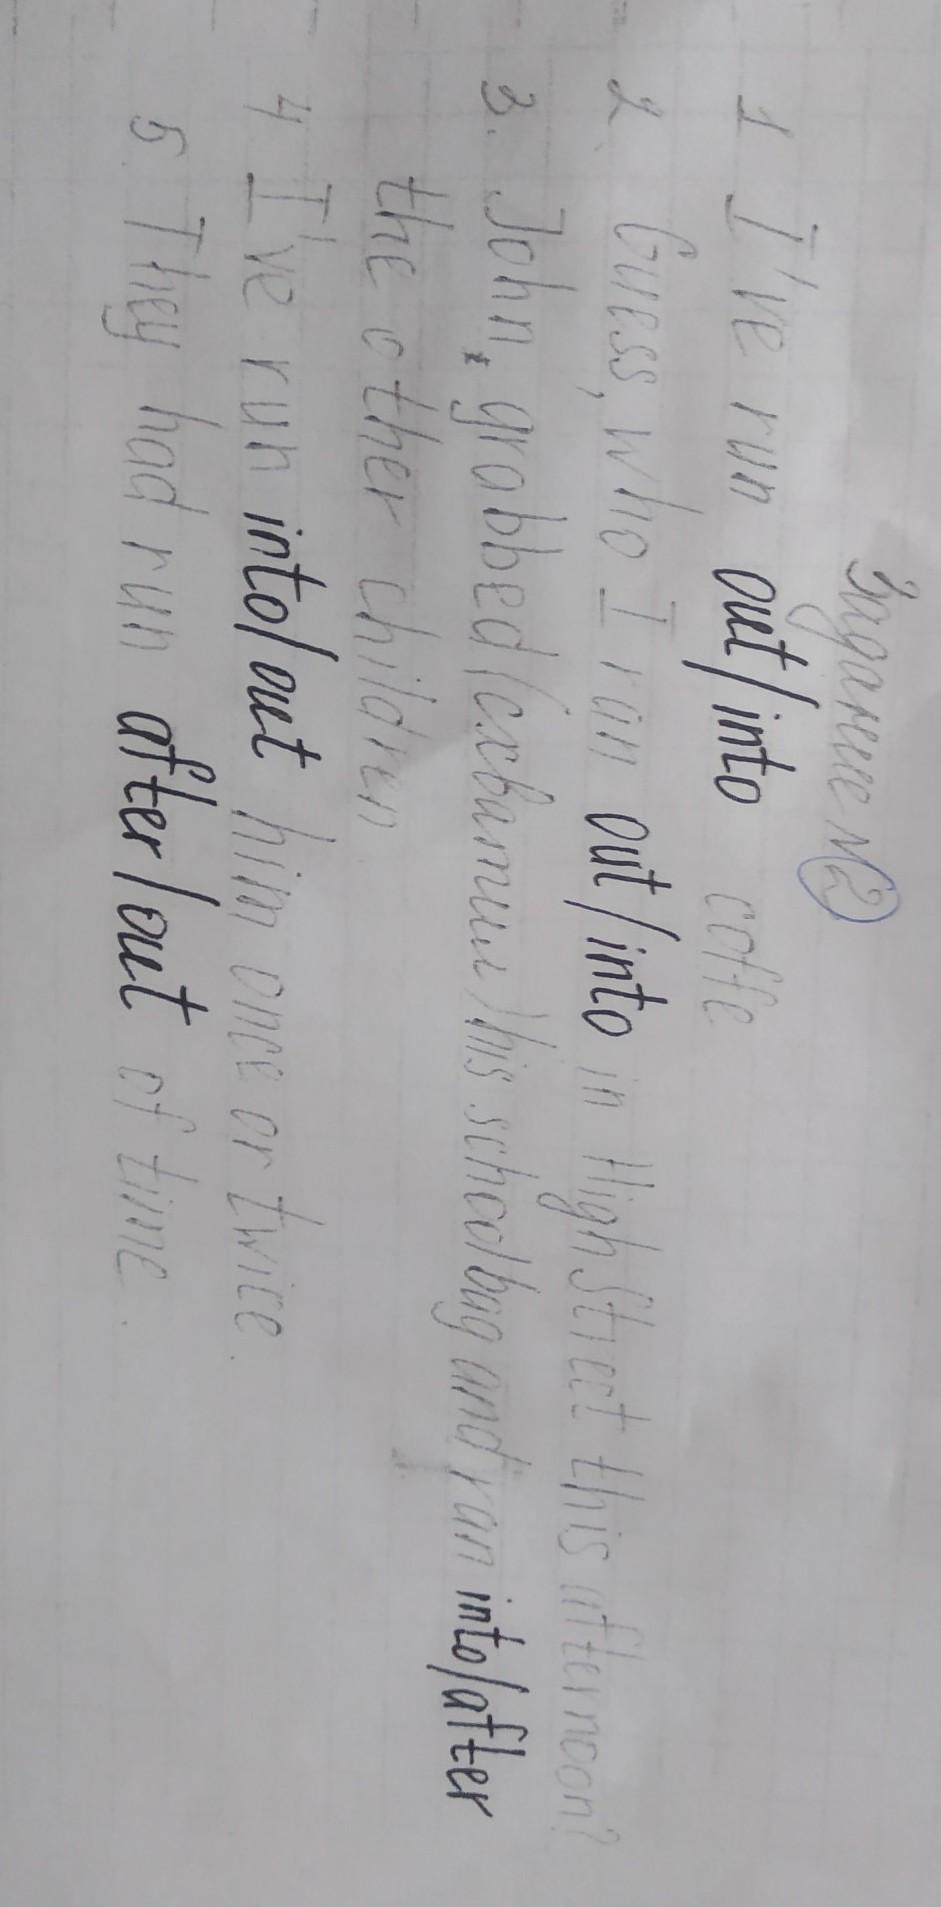 Задание №2
1 I've run out/into coffe
2. Guess, who I ran out/into in High Street this afternoon?
3. John, grabbed (схватил) his schoolbag and ran into/after
the other children
4 I've run into/out him once or twice.
5. They had run after/out of time.